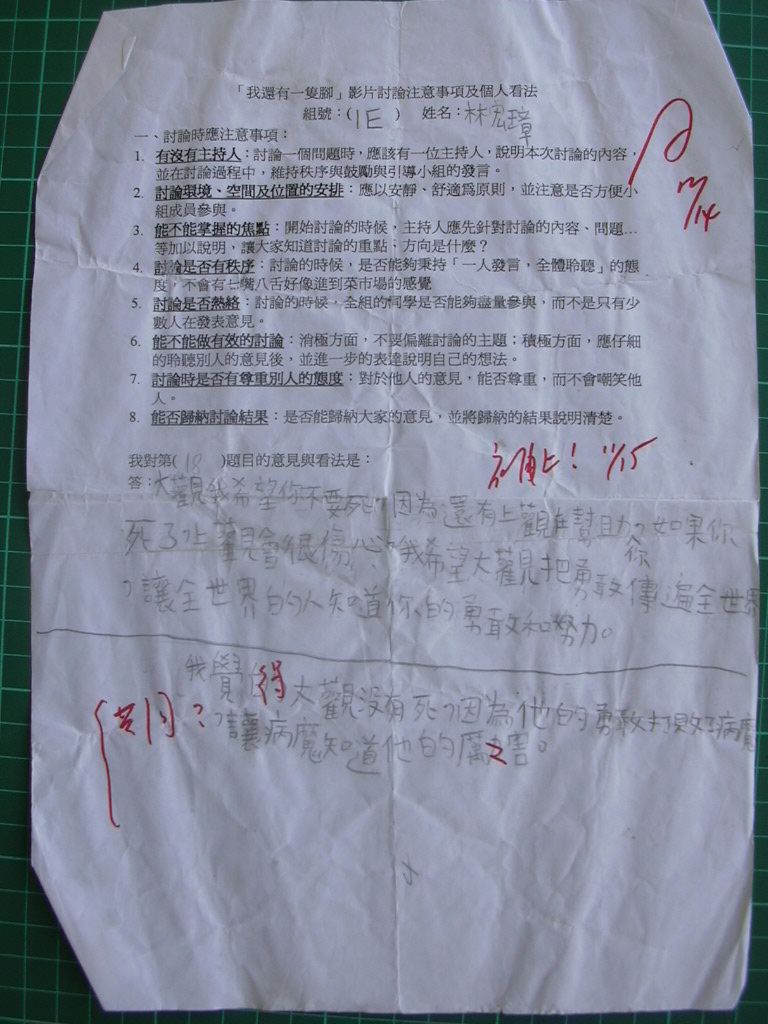 「我還有一隻腳」影片討論注意事項及個人看法
組號:(1E) 姓名:林宏璋
一、討論時應注意事項:
1. 有沒有主持人:討論一個問題時,應該有一位主持人,說明本次討論的內容,
並在討論過程中,維持秩序與鼓勵與引導小組的發言。
2. 討論環境、空間及位置的安排:應以安靜、舒適為原則,並注意是否方便小
組成員參與。
3. 能不能掌握的焦點:開始討論的時候,主持人應先針對討論的內容、問題…
等加以說明,讓大家知道討論的重點、方向是什麼?
4. 討論是否有秩序:討論的時候,是否能夠秉持「一人發言,全體聆聽」的態
度,不會有七嘴八舌好像進到菜市場的感覺
5. 討論是否熱絡:討論的時候,全組的同學是否能夠盡量參與,而不是只有少
數人在發表意見。
6. 能不能做有效的討論:消極方面,不要偏離討論的主題;積極方面,應仔細
的聆聽別人的意見後,並進一步的表達說明自己的想法。
7. 討論時是否有尊重別人的態度:對於他人的意見,能否尊重,而不會嘲笑他
人。
8. 能否歸納討論結果:是否能歸納大家的意見,並將歸納的結果說明清楚。
我對第(18)題目的意見與看法是:
11/15
答:大觀我希望你不要死,因為還有上觀在幫助,如果你
死了,上觀會很傷心。我希望大觀把你勇敢傳遍全世界
,讓全世界的人知道你的勇敢和努力。
我覺得大觀沒有死,因為他的勇敢打敗了病魔
,讓病魔知道他的厲害。